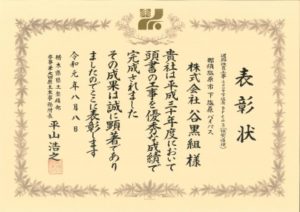 表彰状
那須塩原市下塩原バイパス
株式会社 谷黒組 様
貴社は平成三十年度において
頭書の工事を優秀な成績で
完成されました
その成果は誠に顕著であり
ましたのでここに表彰します
令和元年八月八日
栃木県県土整備部
平山浩之